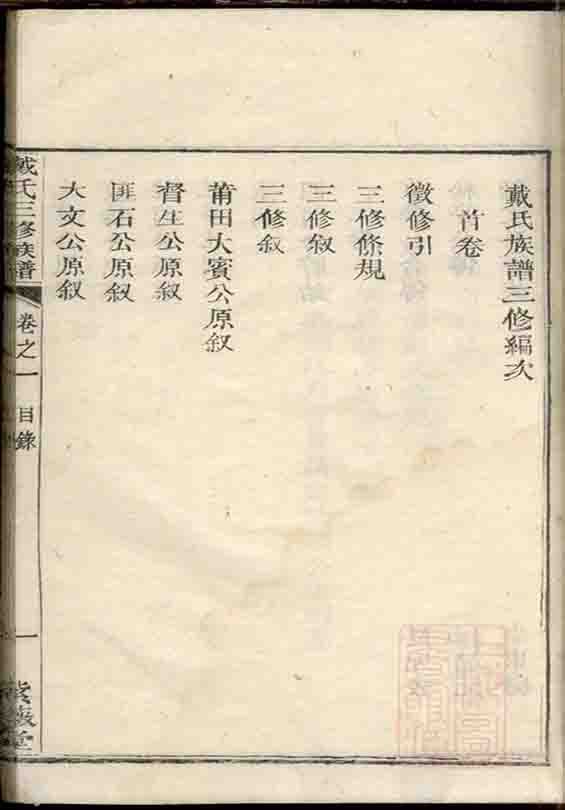 戴氏族譜三修編次
首卷
徵修引
三修條規
三修叙
三修叙
莆田大賓公原叙
督生公原叙
匪石公原叙
大文公原叙
戴氏三修族譜
卷之一
目錄
一